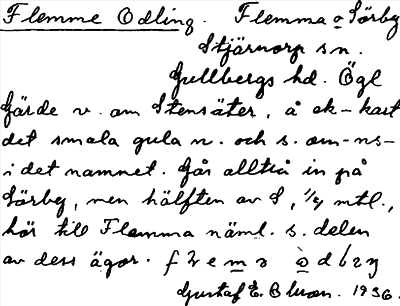 Flemme Odling. Flemma o Sörby
Stjärnorp sn.
Gullbergs hd. Ögl
Gärde v. om Stensäter, å ek-kart
det smala gula n. och s. om -ns-
i det namnet. Går alltså in på
Sörby, men hälften av S, 1/4 mtl.,
hör till Flemma näml. s. delen
av dess ägor.
Gustaf E. 1936.